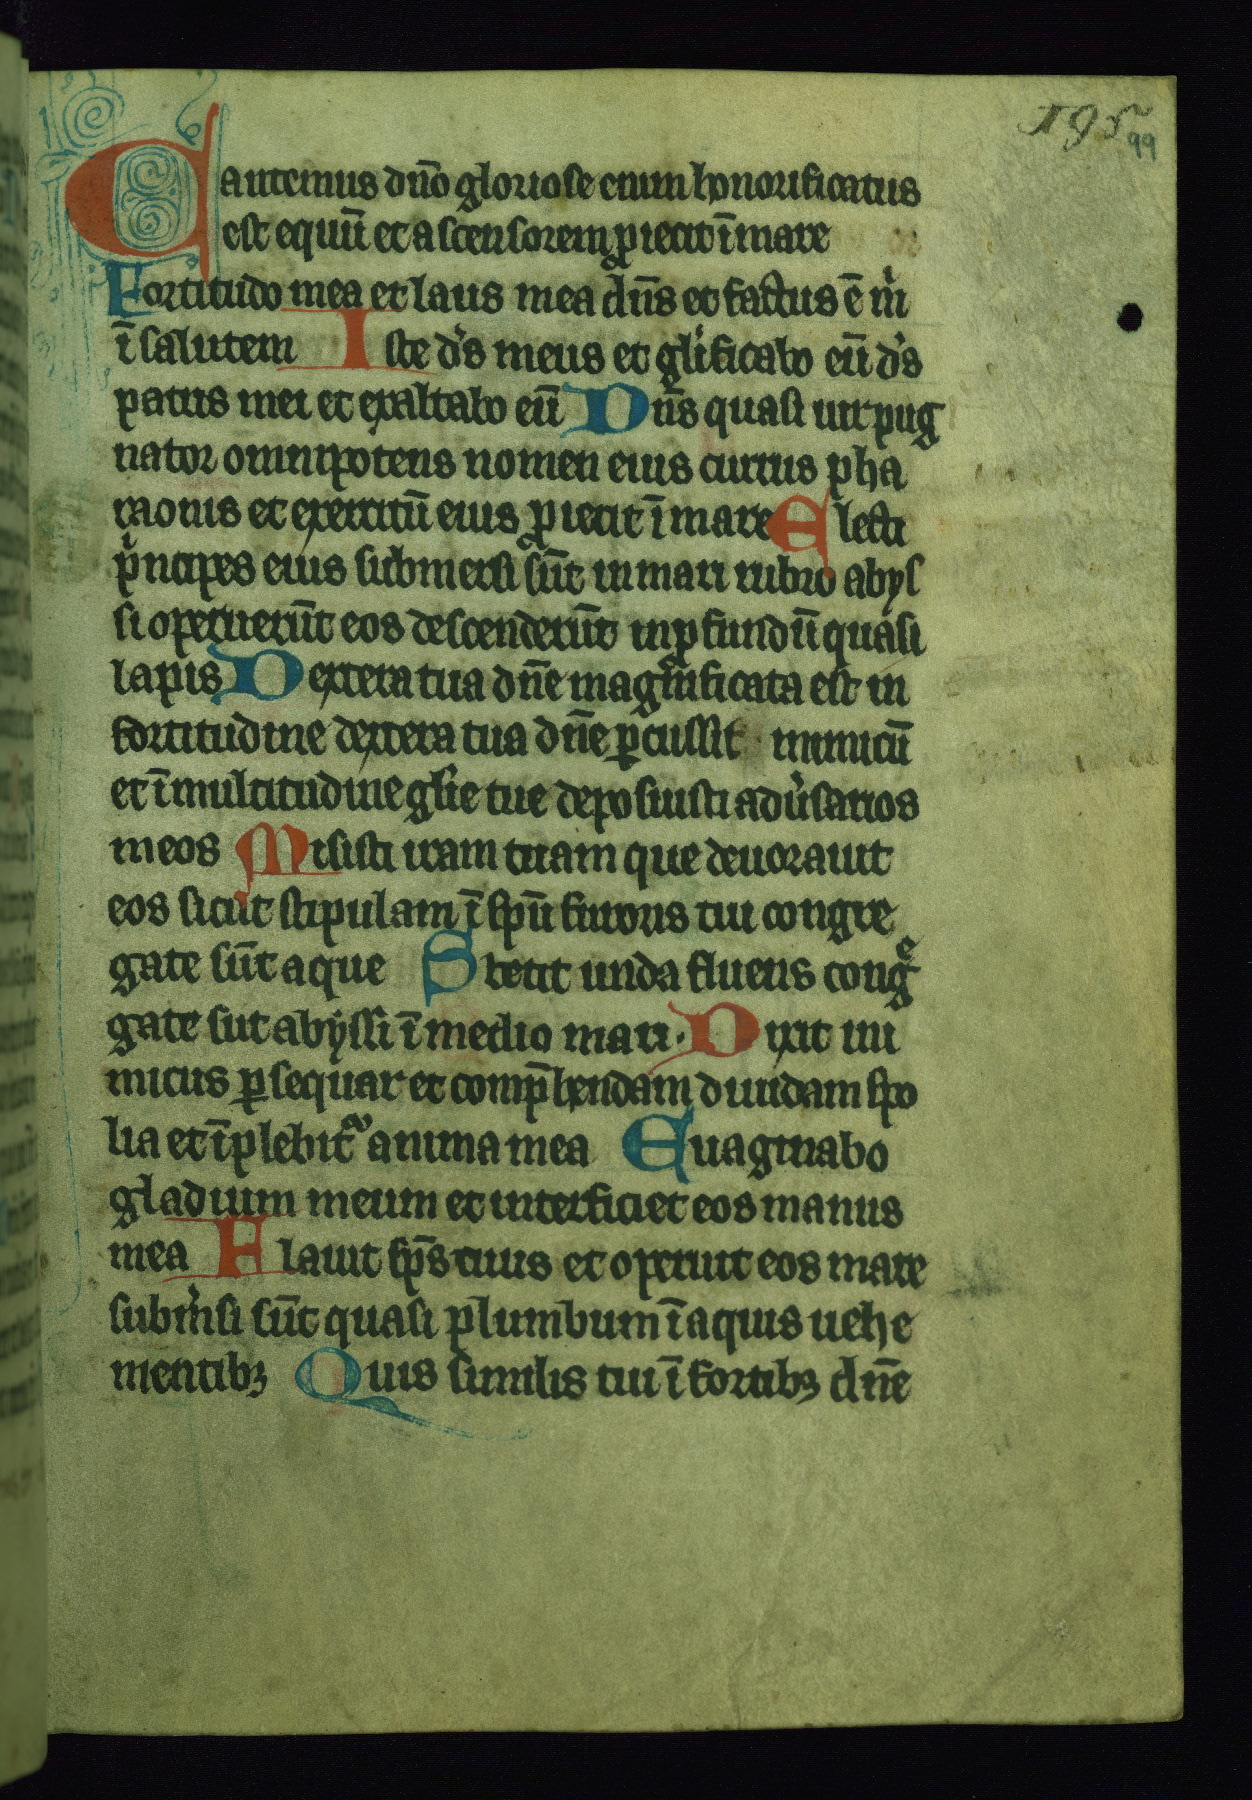 195
99
Cantemus dn̄o gloriose enim honorificatus
est equū et ascensorem ꝓiecit ī mare
Fortitudo mea et laus mea dn̄s et factus ē m̍
ī salutem Iste d̍s meus et gl̍ificabo eū d̍s
patris mei et exaltabo eū Dn̄s quasi uir pug
nator omnipotens nomen eius currus pha
raonis et exercitū eius ꝓiecit ī mare Electi
p̍ncipes eius submersi sūt in mari rubro abys
si operuerūt eos descenderūt in ꝓfundū quasi
lapis Dextera tua dn̄e magnificata est in
fortitudine dextera tua dn̄e ꝑcussit inimicū
et ī multitudine gl̄ie tue deposuisti adu̍sarios
meos Misisti iram tuam que deuorauit
eos sicut stipulam ī sp̄u furoris tui congre
gate sūt aque Stetit unda fluens congͤ
gate sūt abyssi ī medio mari. Dixit ini
micus ꝑsequar et comp̄hendam diuidam spo
lia et īplebit᷑ anima mea Euaginabo
gladium meum et interficiet eos manus
mea Flauit sp̄s tuus et operuit eos mare
subm̍si sūt quasi plumbum ī aquis uehe
mentibꝫ Quis similis tui ī fortibꝫ dn̄e